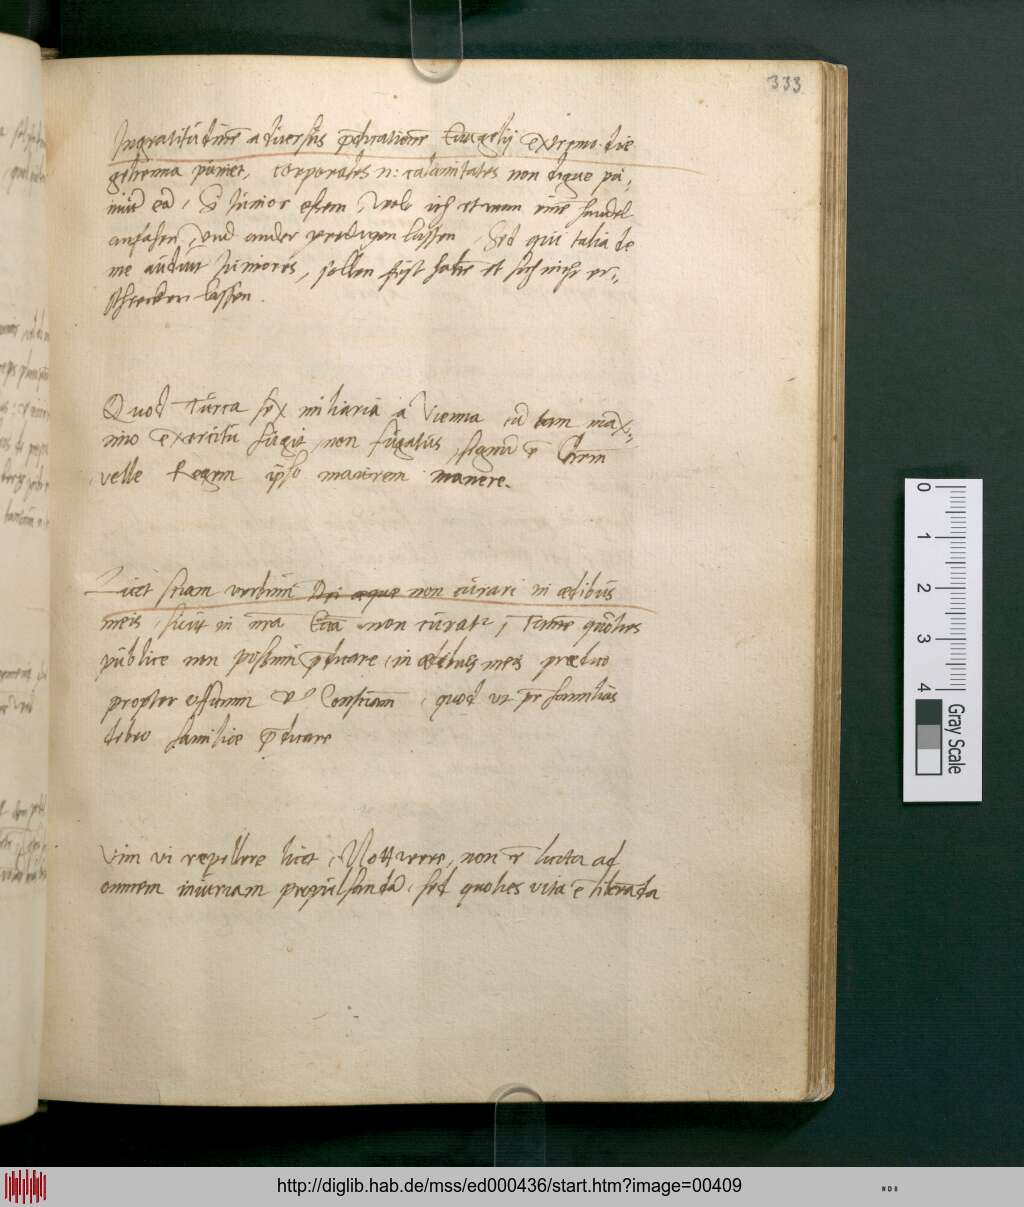 333
Ingratitudinē adversus p̄dicationē Euāgelij extremo die
gehenna puniet, corporales n: calamitates non digne pu,
niūt eā, Si iunior essem, wolt ich etwan eine handel
anfahen, und ander predigen lassen, Sed qui talia de
me audiūt iuniores, sollen fest halte et sich nicht er,,
schrecken lassen.
Quod Turca sex miliaria a Vienna cū tam max,,
imo exercitu fugit, non fugatus, signū ē Chrm
velle Regem ipso maiorem manere.
Licet sciam verbum Dei æque non curari in ædibus
meis, sicut in nr̄a Ecc̄a non curat², Tamē quoties
publice non possum p̄dicare, in ædibus meis prædico
propter officium et Consciam, quod ut pr̄ familias
debeo familiæ p̄dicare
Vim vi repellere licet, Nottwere, non ē licita ad
omnem iniuriam propulsandā, sed quoties vita ē liberāda
0
1
2
3
4
Gray Scale
http://diglib.hab.de/mss/ed000436/start.htm?image=00409